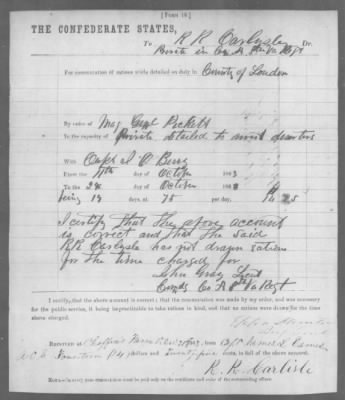 [FORM 18.]
THE CONFEDERATE STATES,
To R R Carlysle Dr.
Private in Co. A Va Regt
For commutation of rations while detailed on duty in County of Louden
By order of Maj Genl Pickett
In the capacity of Private detailed to arrest deserters
With Capt J O Berry
From the 11th day of October 1863
To the 29 day of October 1863
being 19 days, at 75 per day, 14 25
I certify that the above account
is correct and that the said
R.R. Carlysle has not drawn rations
for the time charged for
John Gray Lieut
Comdg Co A 8th Va Regt
I certify, that the above account is correct; that the commutation was made by my order, and was necessary
for the public service, it being impracticable to take rations in kind, and that no rations were drawn for the time
above charged.
RECEIVED at Chaffin's Farm 1863, from Capt
A C S Fourteen dollars and Twenty five cents, in full of the above account.
R. R. Carlisle
NOTE.—